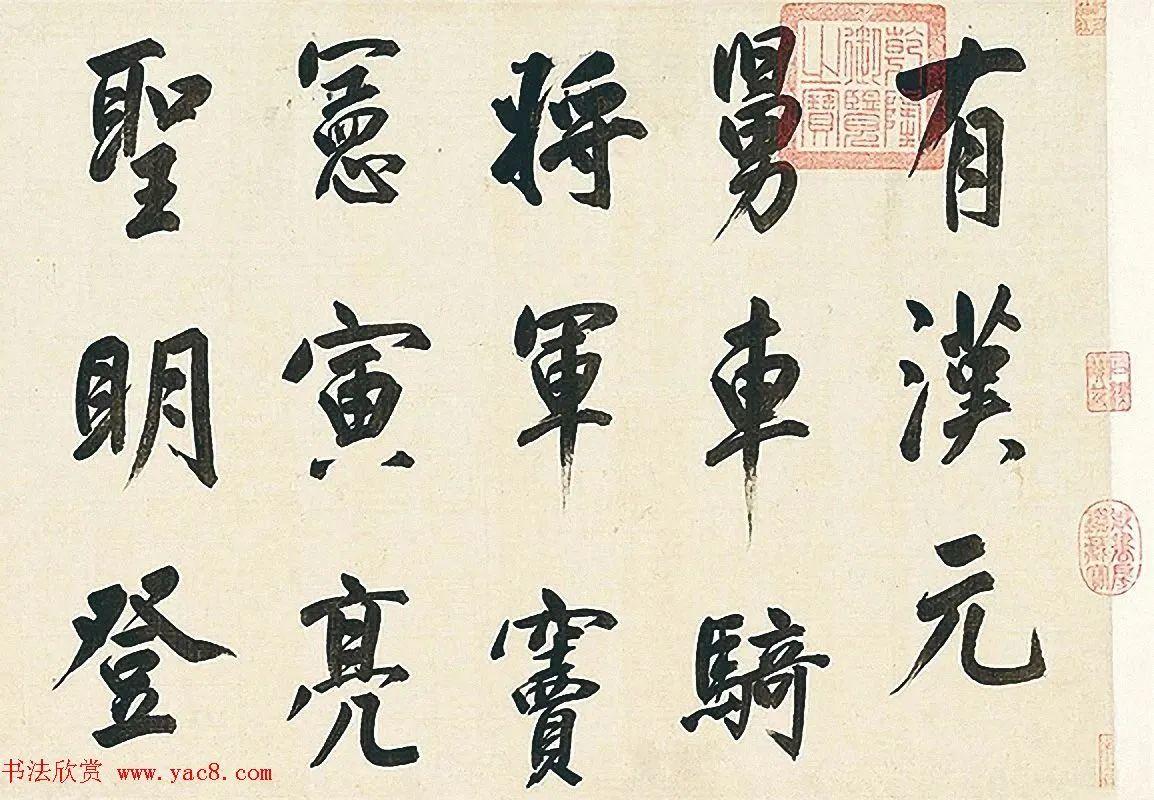 有漢元
舅車騎
將軍竇
憲寅亮
聖明登
乾隆御覽之寶
书法欣赏 www.yac8.com